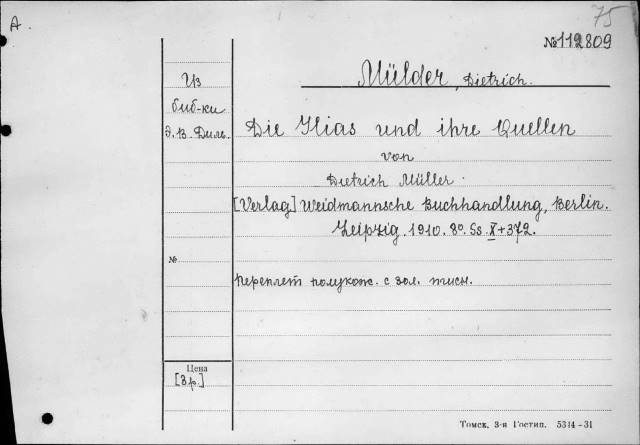 A.
75
№ 112809
Mülder, Dietrich.
Из
биб-ки
Э. В. Диль.
Die Ilias und ihre Quellen
von
Dietrich Müller.
[Verlag] Weidmannsche Buchhandlung, Berlin.
Leipzig. 1910. 8º. Ss. X+372.
№
Переплет полукож. с зол. тисн.
Цена
[3 р.]
Томск. 3-я Гостип. 5314-31